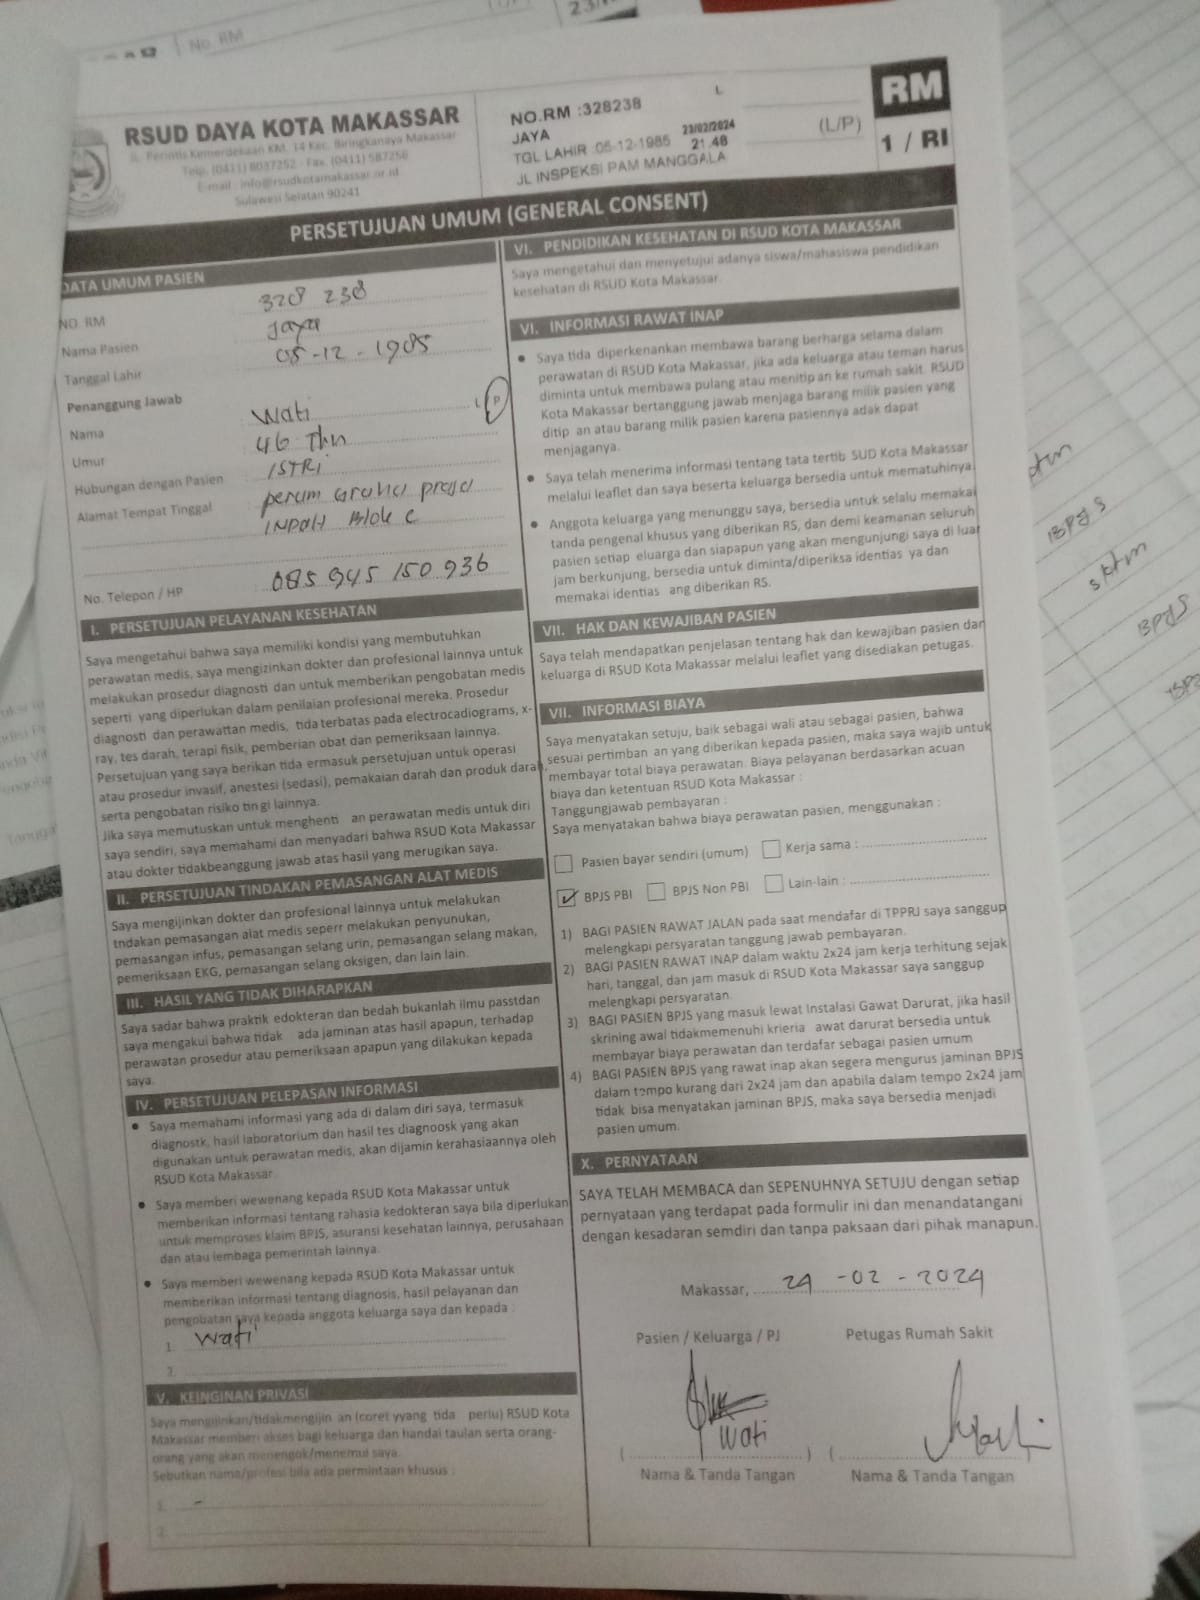 No. RM
23/
RSUD DAYA KOTA MAKASSAR
JL. Perintis Kemerdekaan KM. 14 Kec. Biringkanaya Makassar
Telp. (0411) 8037252 - Fax. (0411) 587256
E-mail : info@rsudkotamakassar.or.id
Sulawesi Selatan 90241
NO.RM :328238
L
JAYA
23/02/2024
TGL LAHIR :05-12-1985
21.48
JL INSPEKSI PAM MANGGALA
(L/P)
RM
1 / RI
PERSETUJUAN UMUM (GENERAL CONSENT)
DATA UMUM PASIEN
NO. RM : 328 238
Nama Pasien : Jaya
Tanggal Lahir : 05-12-1985
Penanggung Jawab
Nama : Wati L / P
Umur : 46 Thn
Hubungan dengan Pasien : ISTRi
Alamat Tempat Tinggal : perum Graha praja
INDAH Blok C
No. Telepon / HP : 085 945 150 936
I. PERSETUJUAN PELAYANAN KESEHATAN
Saya mengetahui bahwa saya memiliki kondisi yang membutuhkan
perawatan medis, saya mengizinkan dokter dan profesional lainnya untuk
melakukan prosedur diagnosti dan untuk memberikan pengobatan medis
seperti yang diperlukan dalam penilaian profesional mereka. Prosedur
diagnosti dan perawattan medis, tida terbatas pada electrocadiograms, x-
ray, tes darah, terapi fisik, pemberian obat dan pemeriksaan lainnya.
Persetujuan yang saya berikan tida ermasuk persetujuan untuk operasi
atau prosedur invasif, anestesi (sedasi), pemakaian darah dan produk darah,
serta pengobatan risiko tin gi lainnya.
Jika saya memutuskan untuk menghenti an perawatan medis untuk diri
saya sendiri, saya memahami dan menyadari bahwa RSUD Kota Makassar
atau dokter tidakbeanggung jawab atas hasil yang merugikan saya.
II. PERSETUJUAN TINDAKAN PEMASANGAN ALAT MEDIS
Saya mengijinkan dokter dan profesional lainnya untuk melakukan
tndakan pemasangan alat medis seperr melakukan penyunukan,
pemasangan infus, pemasangan selang urin, pemasangan selang makan,
pemeriksaan EKG, pemasangan selang oksigen, dan lain lain.
III. HASIL YANG TIDAK DIHARAPKAN
Saya sadar bahwa praktik edokteran dan bedah bukanlah ilmu passtdan
saya mengakui bahwa tidak ada jaminan atas hasil apapun, terhadap
perawatan prosedur atau pemeriksaan apapun yang dilakukan kepada
saya.
IV. PERSETUJUAN PELEPASAN INFORMASI
• Saya memahami informasi yang ada di dalam diri saya, termasuk
diagnostk, hasil laboratorium dan hasil tes diagnoosk yang akan
digunakan untuk perawatan medis, akan dijamin kerahasiaannya oleh
RSUD Kota Makassar.
• Saya memberi wewenang kepada RSUD Kota Makassar untuk
memberikan informasi tentang rahasia kedokteran saya bila diperlukan
untuk memproses klaim BPJS, asuransi kesehatan lainnya, perusahaan
dan atau lembaga pemerintah lainnya.
• Saya memberi wewenang kepada RSUD Kota Makassar untuk
memberikan informasi tentang diagnosis, hasil pelayanan dan
pengobatan saya kepada anggota keluarga saya dan kepada :
1. Wati
2.
V. KEINGINAN PRIVASI
Saya mengijinkan/tidakmengijin an (coret yyang tida perlu) RSUD Kota
Makassar memberi akses bagi keluarga dan handai taulan serta orang-
orang yang akan menengok/menemui saya.
Sebutkan nama/profesi bila ada permintaan khusus :
1. -
2.
VI. PENDIDIKAN KESEHATAN DI RSUD KOTA MAKASSAR
Saya mengetahui dan menyetujui adanya siswa/mahasiswa pendidikan
kesehatan di RSUD Kota Makassar.
VI. INFORMASI RAWAT INAP
• Saya tida diperkenankan membawa barang berharga selama dalam
perawatan di RSUD Kota Makassar, jika ada keluarga atau teman harus
diminta untuk membawa pulang atau menitip an ke rumah sakit. RSUD
Kota Makassar bertanggung jawab menjaga barang milik pasien yang
ditip an atau barang milik pasien karena pasiennya adak dapat
menjaganya.
• Saya telah menerima informasi tentang tata tertib SUD Kota Makassar
melalui leaflet dan saya beserta keluarga bersedia untuk mematuhinya
• Anggota keluarga yang menunggu saya, bersedia untuk selalu memakai
tanda pengenal khusus yang diberikan RS, dan demi keamanan seluruh
pasien setiap eluarga dan siapapun yang akan mengunjungi saya di luar
jam berkunjung, bersedia untuk diminta/diperiksa identias ya dan
memakai identias ang diberikan RS.
VII. HAK DAN KEWAJIBAN PASIEN
Saya telah mendapatkan penjelasan tentang hak dan kewajiban pasien dan
keluarga di RSUD Kota Makassar melalui leaflet yang disediakan petugas.
VII. INFORMASI BIAYA
Saya menyatakan setuju, baik sebagai wali atau sebagai pasien, bahwa
sesuai pertimban an yang diberikan kepada pasien, maka saya wajib untuk
membayar total biaya perawatan. Biaya pelayanan berdasarkan acuan
biaya dan ketentuan RSUD Kota Makassar :
Tanggungjawab pembayaran :
Saya menyatakan bahwa biaya perawatan pasien, menggunakan :
Pasien bayar sendiri (umum) Kerja sama :
BPJS PBI BPJS Non PBI Lain-lain :
1) BAGI PASIEN RAWAT JALAN pada saat mendafar di TPPRJ saya sanggup
melengkapi persyaratan tanggung jawab pembayaran.
2) BAGI PASIEN RAWAT INAP dalam waktu 2x24 jam kerja terhitung sejak
hari, tanggal, dan jam masuk di RSUD Kota Makassar saya sanggup
melengkapi persyaratan.
3) BAGI PASIEN BPJS yang masuk lewat Instalasi Gawat Darurat, jika hasil
skrining awal tidakmemenuhi krieria awat darurat bersedia untuk
membayar biaya perawatan dan terdafar sebagai pasien umum
4) BAGI PASIEN BPJS yang rawat inap akan segera mengurus jaminan BPJS
dalam tempo kurang dari 2x24 jam dan apabila dalam tempo 2x24 jam
tidak bisa menyatakan jaminan BPJS, maka saya bersedia menjadi
pasien umum.
X. PERNYATAAN
SAYA TELAH MEMBACA dan SEPENUHNYA SETUJU dengan setiap
pernyataan yang terdapat pada formulir ini dan menandatangani
dengan kesadaran semdiri dan tanpa paksaan dari pihak manapun.
Makassar, 24 - 02 - 2024
Pasien / Keluarga / PJ Petugas Rumah Sakit
Wati
Nama & Tanda Tangan Nama & Tanda Tangan
BPJS
sktm
BPJS